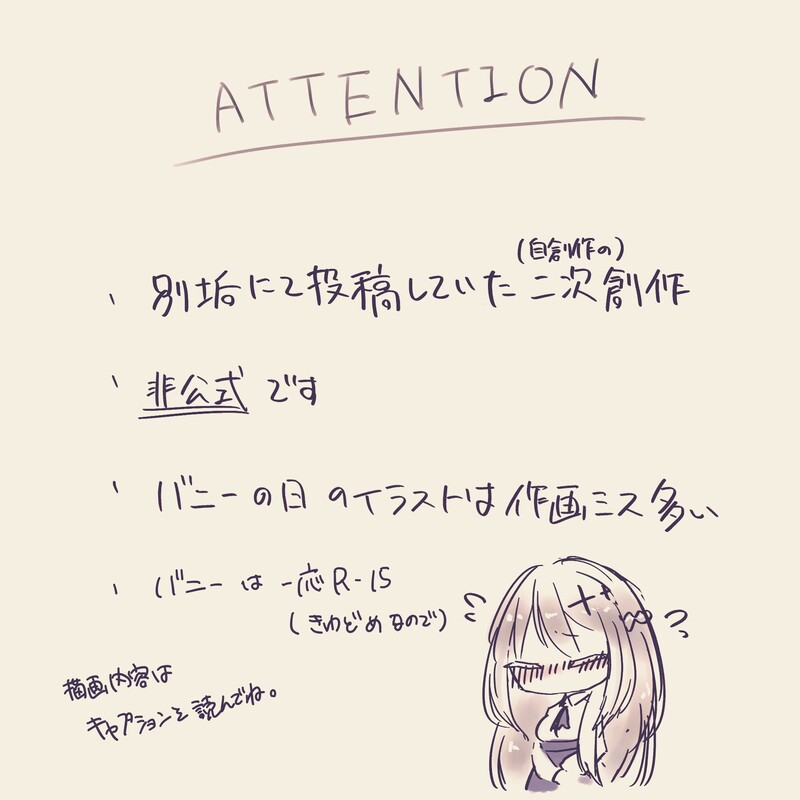 ATTENTION
(自創作の)
、別垢にて投稿していた二次創作
、非公式です
、バニーの日のイラストは作画ミス多い
、バニーは一応R-15
(きわどめなので)
描画内容は
キャプションを読んでね。